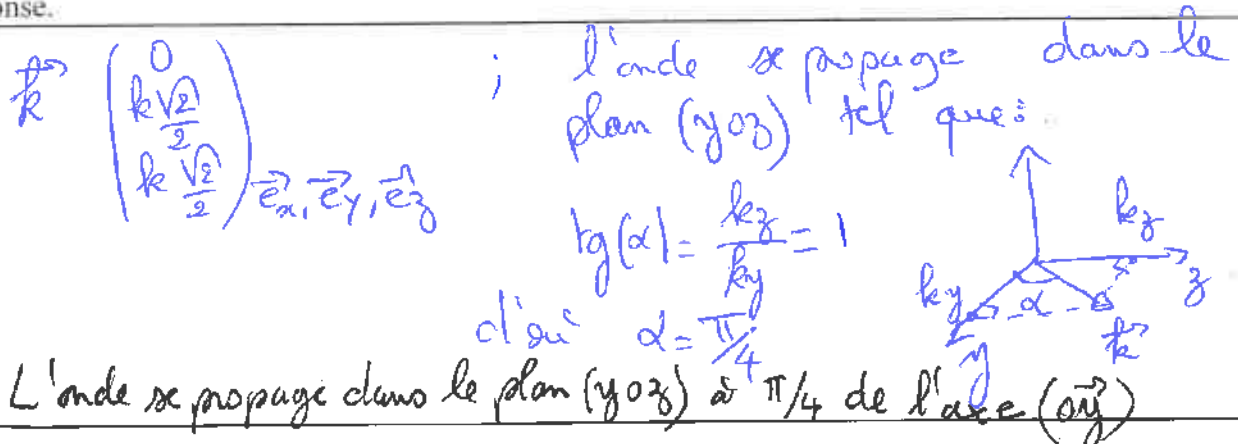 onse.
k⃗ (0, k√2/2, k√2/2) e⃗x, e⃗y, e⃗z ; l'onde se propage dans le
plan (yoz) tel que:
tg(α) = kz/ky = 1
d'où α = π/4
kz
z
ky
α
k⃗
y
L'onde se propage dans le plan (yoz) à π/4 de l'axe (oy⃗)